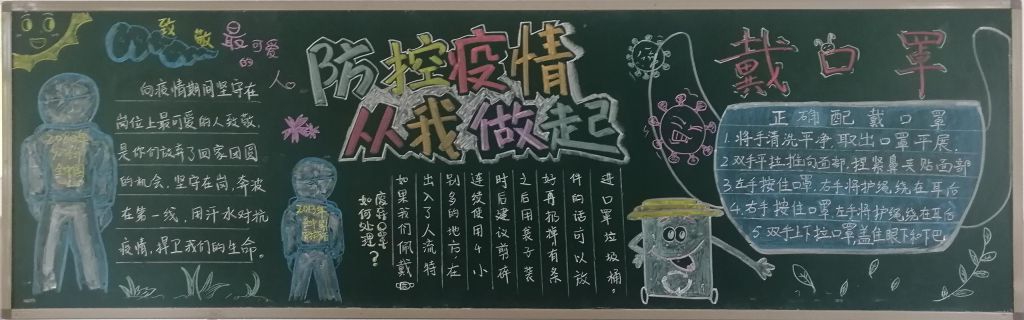 致敬最可爱的人。
向疫情期间坚守在
岗位上最可爱的人致敬,
是你们放弃了回家团圆
的机会,坚守在岗,奔波
在第一线,用汗水对抗
疫情,捍卫我们的生命。
防控疫情
从我做起
废弃口罩
如何处理?
如果我们佩戴
出入了人流特
别多的地方,在
连续使用4小
时后建议剪碎
之后用袋子装
好再扔掉有条
件的话可以放
进口罩垃圾桶。
戴口罩
正确配戴口罩
1.将手清洗干净,取出口罩平展,
2.双手平拉推向面部,捏紧鼻夹贴面部
3.左手按住口罩,右手将护绳绕在耳后
4.右手按住口罩左手将护绳绕在耳后
5.双手上下拉口罩盖住眼下和下巴